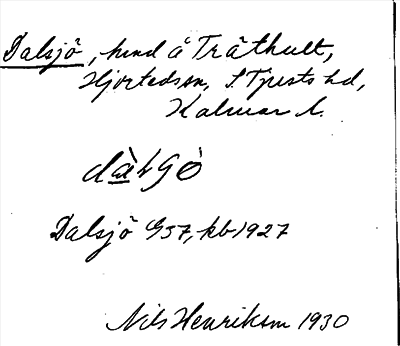 Dalsjö, hmd å Tråthult,
Hjorteds sn, S. Tjusts hd,
Kalmar l.
Dalsjö G57, kb 1927
Nils Henrikson 1930